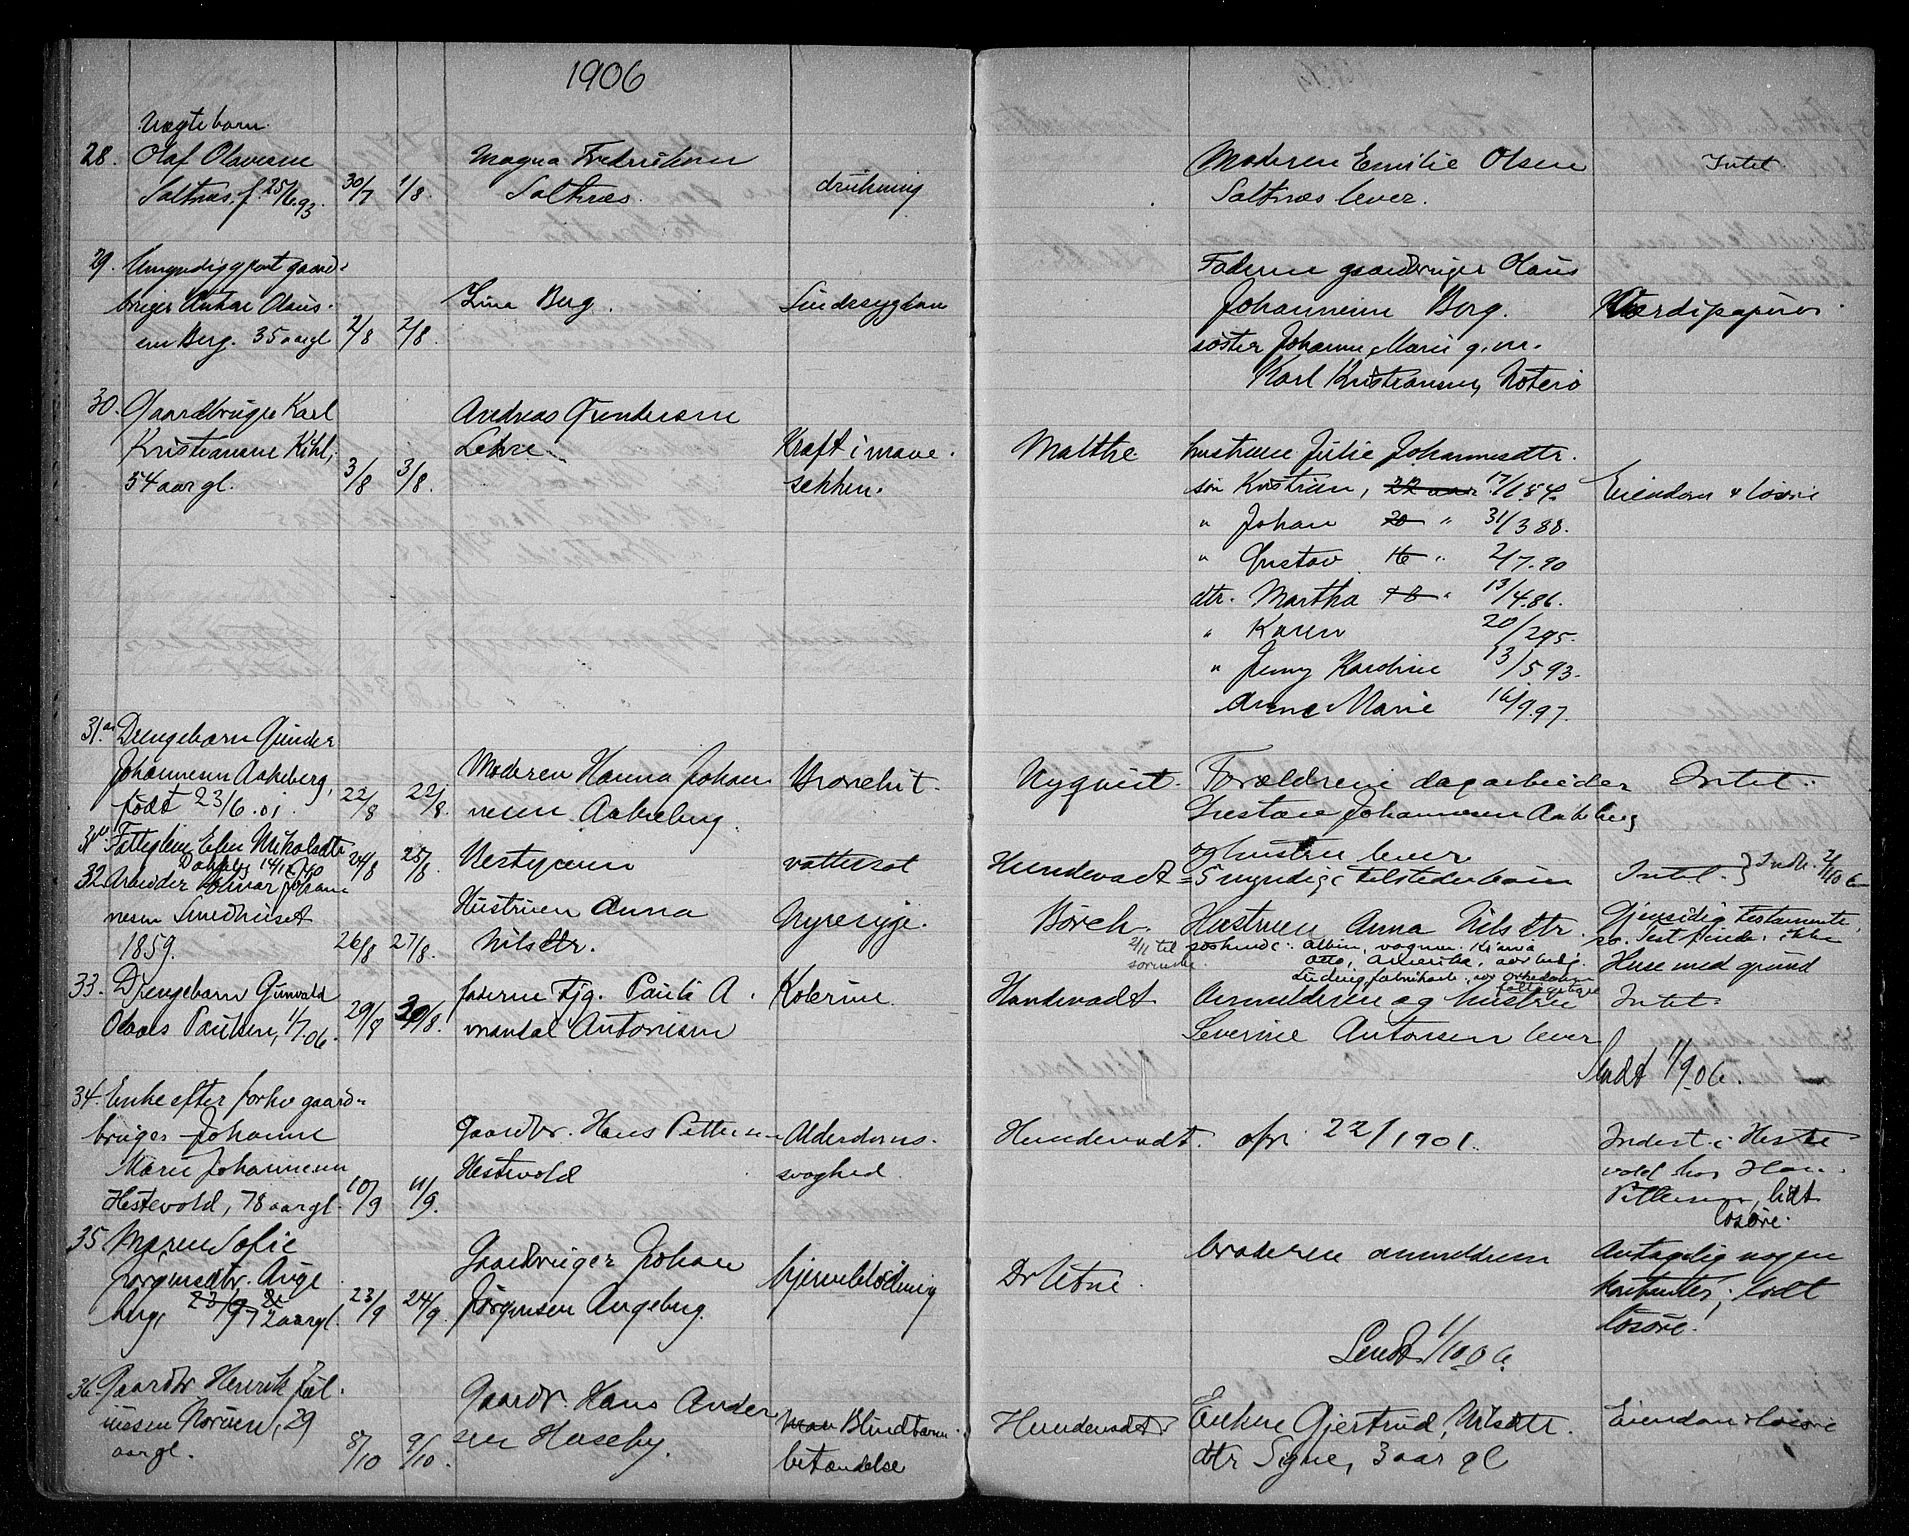 1906
Uægte barn
28. Olaf Olavesen
Saltnæs. f. 25/6.93. 30/7 1/8.
Magna Fredriksen
Saltnæs.
drukning
Moderen Emilie Olsen
Saltnæs lever.
Intet
29. Umyndiggjort gaard-
bruger Anton Olaus-
sen Berg. 35 aar gl 2/8 2/8.
Lina Berg.
Sindssygdom
Faderen gaardbruger Olaus
Johannesen Berg.
søster Johanne Marie g. m.
Karl Kristiansen, Noterö
Værdipapirer
30. Gaardbruger Karl
Kristiansen Kihl,
54 aar gl. 3/8 3/8.
Andreas Gundersen
Lehre
Kræft i mave-
sækken.
Malthe.
hustruen Julie Johannesdtr.
søn Kristian, 22 aar. 17/1 84.
" Johan 20 " 31/3 88.
" Gustav 16 " 2/7.90
dtr. Martha 18 " 13/4.86.
" Karen 20/2 95.
" Jenny Karoline 13/5 93.
Anna Marie 16/9.97.
Eiendom & løsøre
31. Drengebarn Gunder
Johannesen Aakeberg,
født 23/6.01 22/8 22/8.
Moderen Hanna Johan
nesen Aakeberg.
Bronchit.
Nyquist.
Forældrene dagarbeider
Gustav Johannesen Aakeberg
og hustru lever
Intet.
Fattiglem Elen Nikolsdtr 24/8 25/8
Bestyreren
vattersot
Hundevadt
5 myndige tilstede børn
Intet. } Indb. 2/10 6
32. Arbeider Johan
nesen Smedhuset
1859. 26/8 27/8.
Hustruen Anna
Nilsdtr.
Nyresyge.
Børch.
Hustruen Anna Nilsdtr.
2/11 til
søskende: Albin,
Otto, Amerika,
Ludvig fabrikarb.
Gjensidig testamente,
Hus med grund
33. Drengebarn Gunvald
Olaves Paulsen, 1/7.06. 29/8 30/8.
faderen Fjg. Pauli A.
Antonisen
Kolerine
Hundevadt
Anmelderen og hustru
Severine Antonsen lever
Intet.
Sendt 1/9 06.
34. Enke efter forhv gaard-
bruger Johanne
Marie Johannesen
Hestevold, 78 aar gl. 10/9 11/9.
Gaardbr. Hans Pettersen
Hestevold
Alderdoms-
svaghed.
Hundevadt.
ofr 22/1 1901.
Inderst i Heste
vold hos Hans
Pettersen, lidt
løsøre.
35. Maren Sofie
Jørgensdtr. Ange
berg, 23/9 72 aar gl. 23/9 24/9.
Gaardbruger Johan
Jørgensen Angeberg.
hjerneblødning
Dr Utne.
broderen anmelderen
Antagelig nogen
kontanter; lidt
løsøre.
Sendt 1/10 06.
36. Gaardbr Henrik Jul
iussen Noreen, 29
aar gl. 8/10 9/10.
Gaardbr. Hans Ander
sen Huseby.
Blindtarm-
betændelse
Hundevadt
Enken Gjertrud Nilsdtr.
dtr Signe, 3 aar gl
Eiendom & løsøre